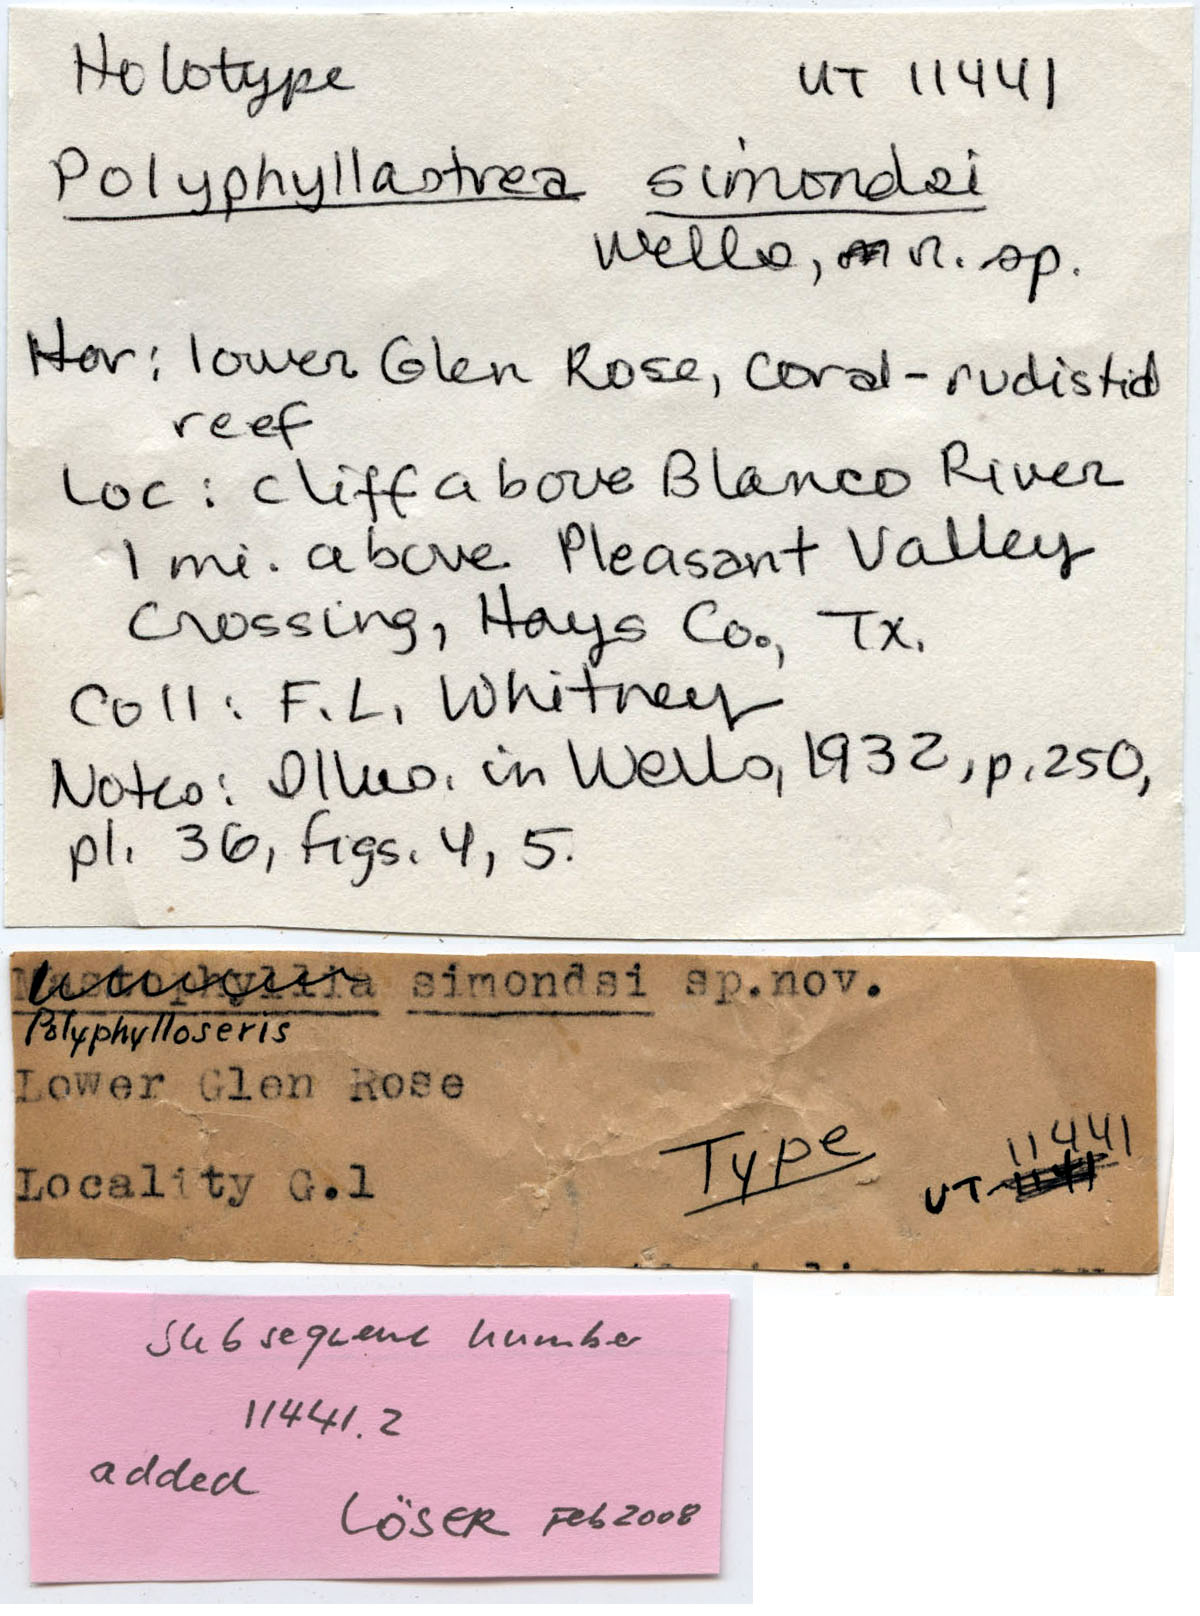 Holotype UT 11441
Polyphyllastrea simondsi
Wells, n. sp.
Hor: lower Glen Rose, coral-rudistid
reef
Loc: cliff above Blanco River
1 mi. above Pleasant Valley
Crossing, Hays Co., Tx.
Coll: F.L. Whitney
Notes: Illus. in Wells, 1932, p. 250,
pl. 36, figs. 4, 5.
Mastophyllia simondsi sp.nov.
Polyphylloseris
Lower Glen Rose
Type 11441
UT-
Locality G.1
subsequent number
11441.2
added
LÖSER Feb 2008